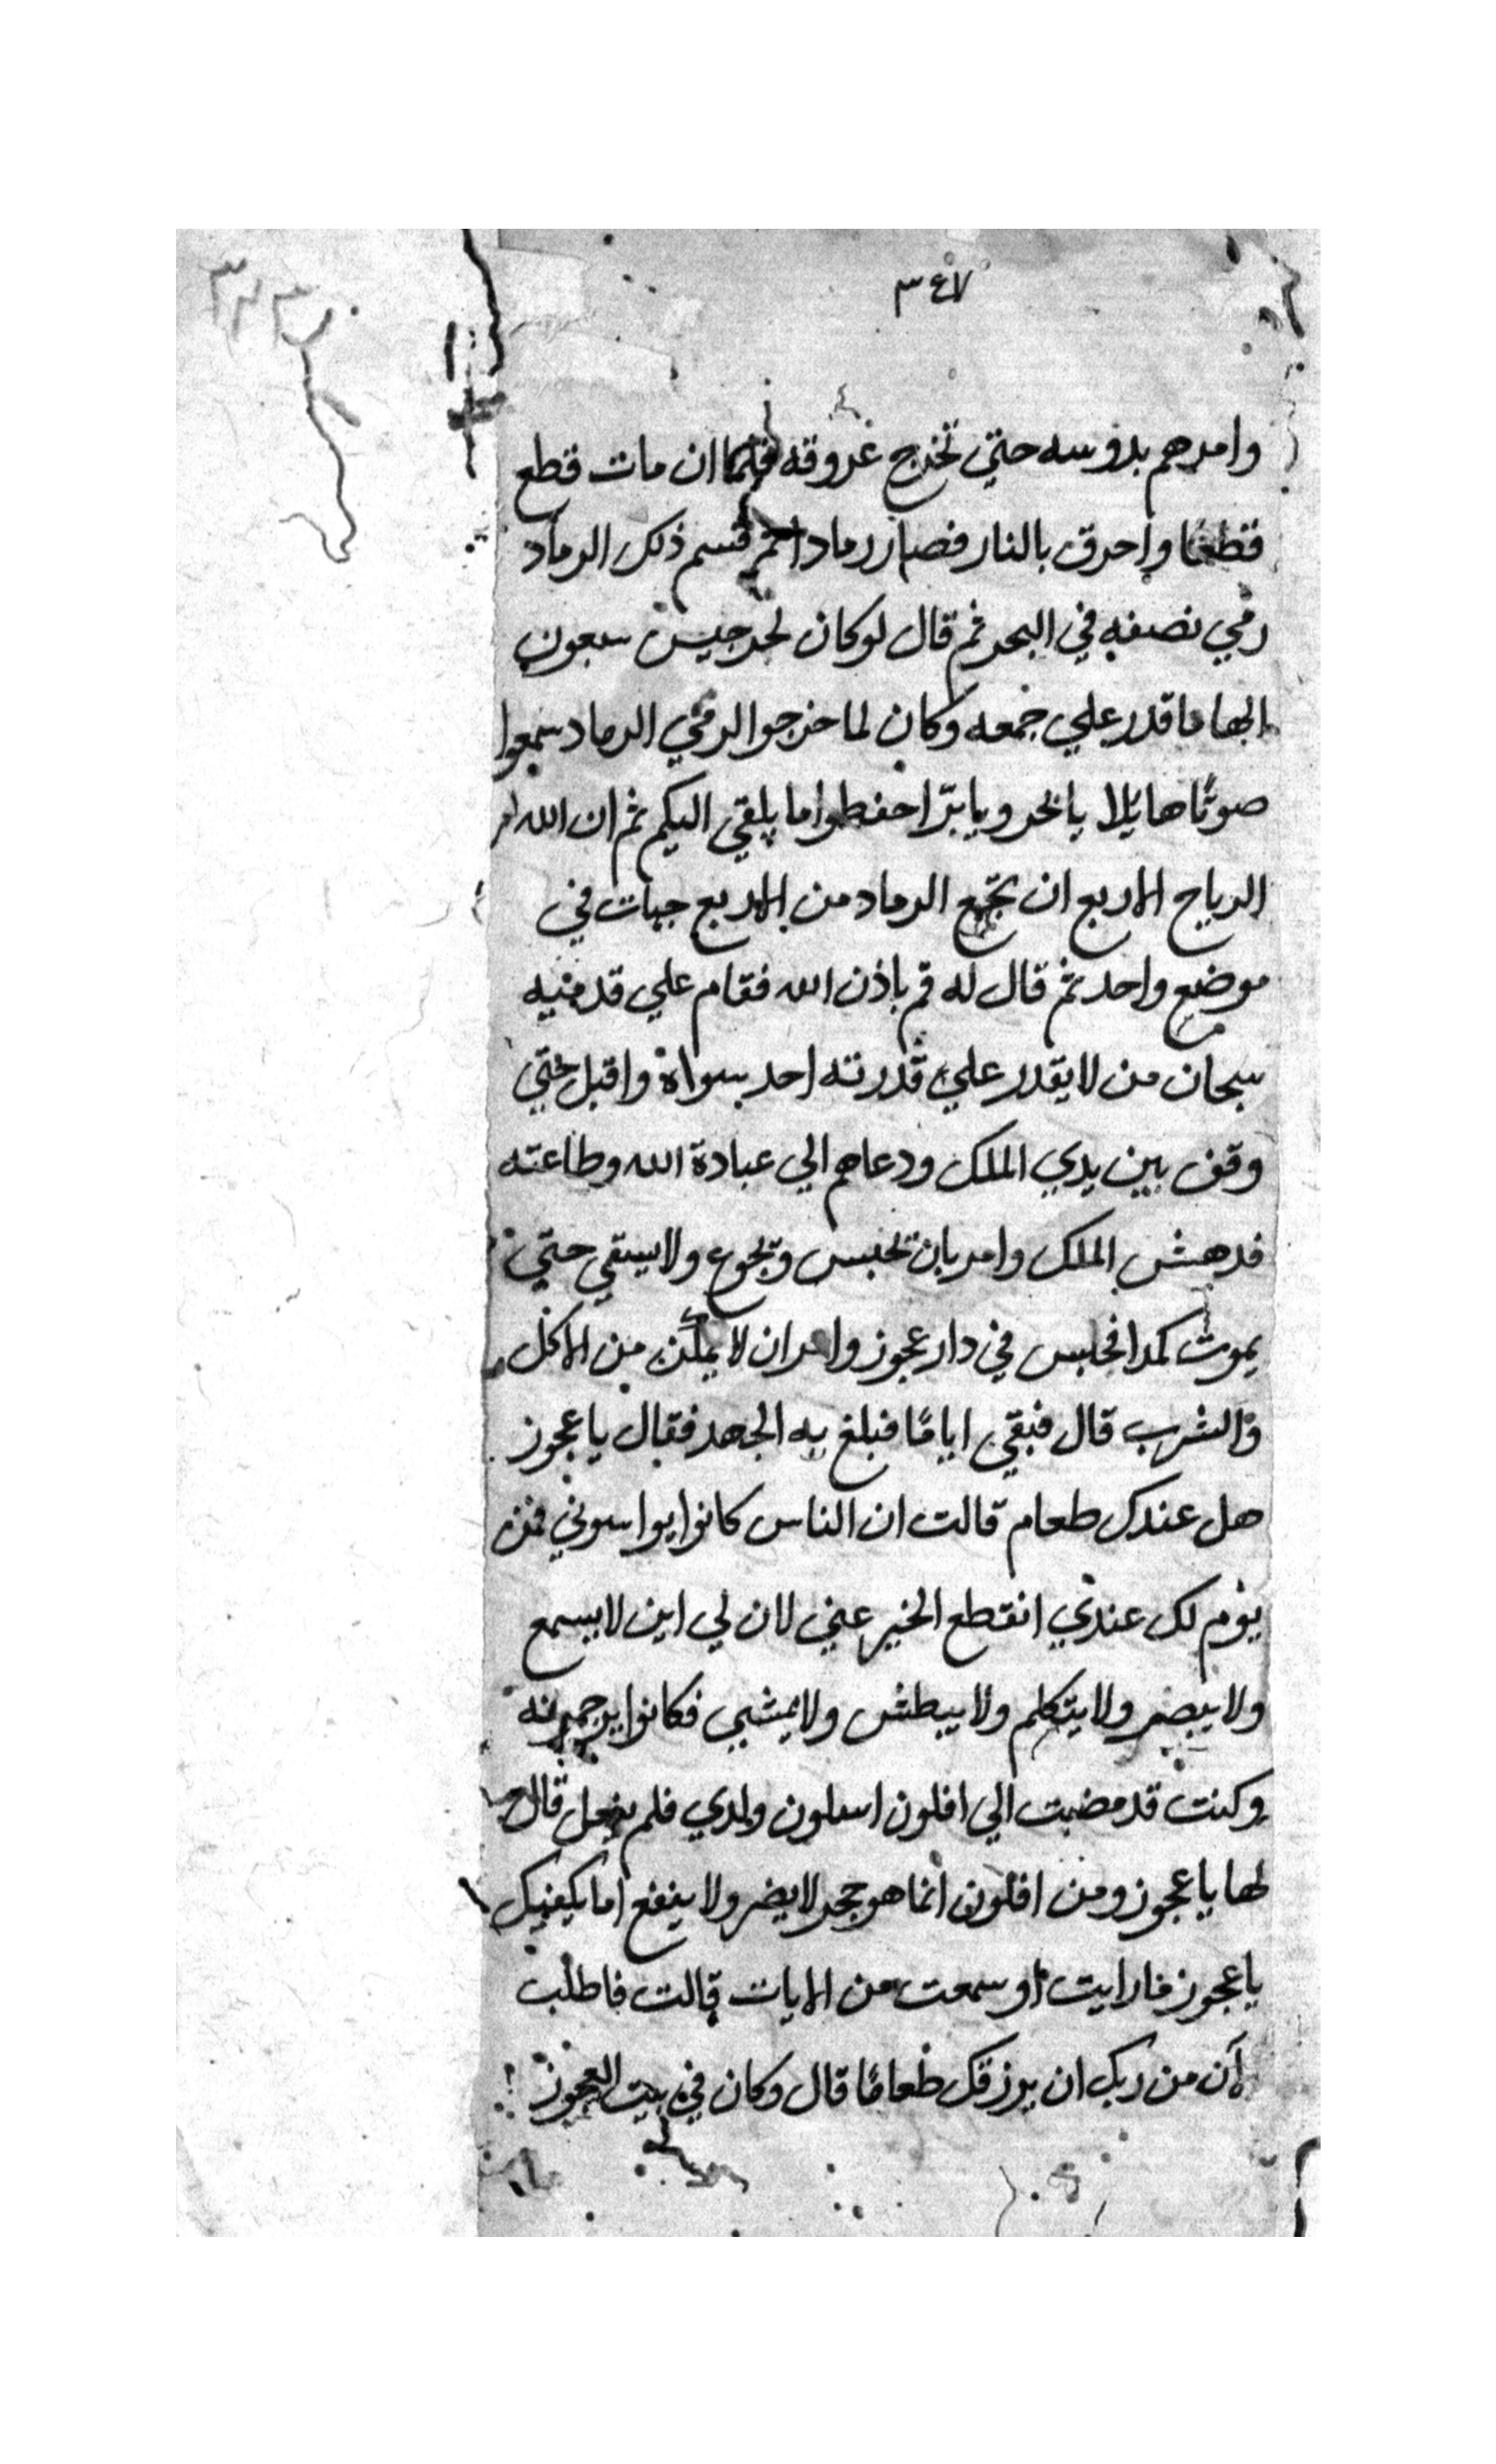 ٣٤٧
وامرهم بدوسه حتي تخرج عروقه فلما ان مات قطع
قطعا واحرق بالنار فصار رمادا ثم قسم ذلك الرماد
رمي نصفه في البحر ثم قال لو كان لجرجيس سبعون
الها ما قدر علي جمعه وكان لما خرجوا لرمي الرماد سمعوا
صوتًا هايلا يا بحر ويا بر احفظوا ما يلقي اليكم ثم ان الله امر
الرياح الاربع ان تجمع الرماد من الاربع جهات في
موضع واحد ثم قال له قم باذن الله فقام علي قدميه
سبحان من لا يقدر علي قدرته احد سواه واقبل حتي
وقف بين يدي الملك ودعاهم الي عبادة الله وطاعته
فدهش الملك وامر بان تحبس وتجوع ولا يسقي حتي
يموت كمدا فحبس في دار عجوز وامر ان لا يمكن من الاكل
والشرب قال فبقي ايامًا فبلغ به الجهد فقال يا عجوز
هل عندك طعام قالت ان الناس كانوا يواسوني فمن
يوم لك عندي انقطع الخير عني لان لي ابن لا يسمع
ولا يبصر ولا يتكلم ولا يبطش ولا يمشي فكانوا يرحمونه
وكنت قد مضيت الي افلون اسلون ولدي فلم يفعل قال
لها يا عجوز ومن افلون انما هو حجر لا يضر ولا ينفع اما يكفيك
يا عجوز ما رايت او سمعت من الايات قالت فاطلب
لان من ربك ان يرزقك طعامًا قال وكان في بيت العجوز